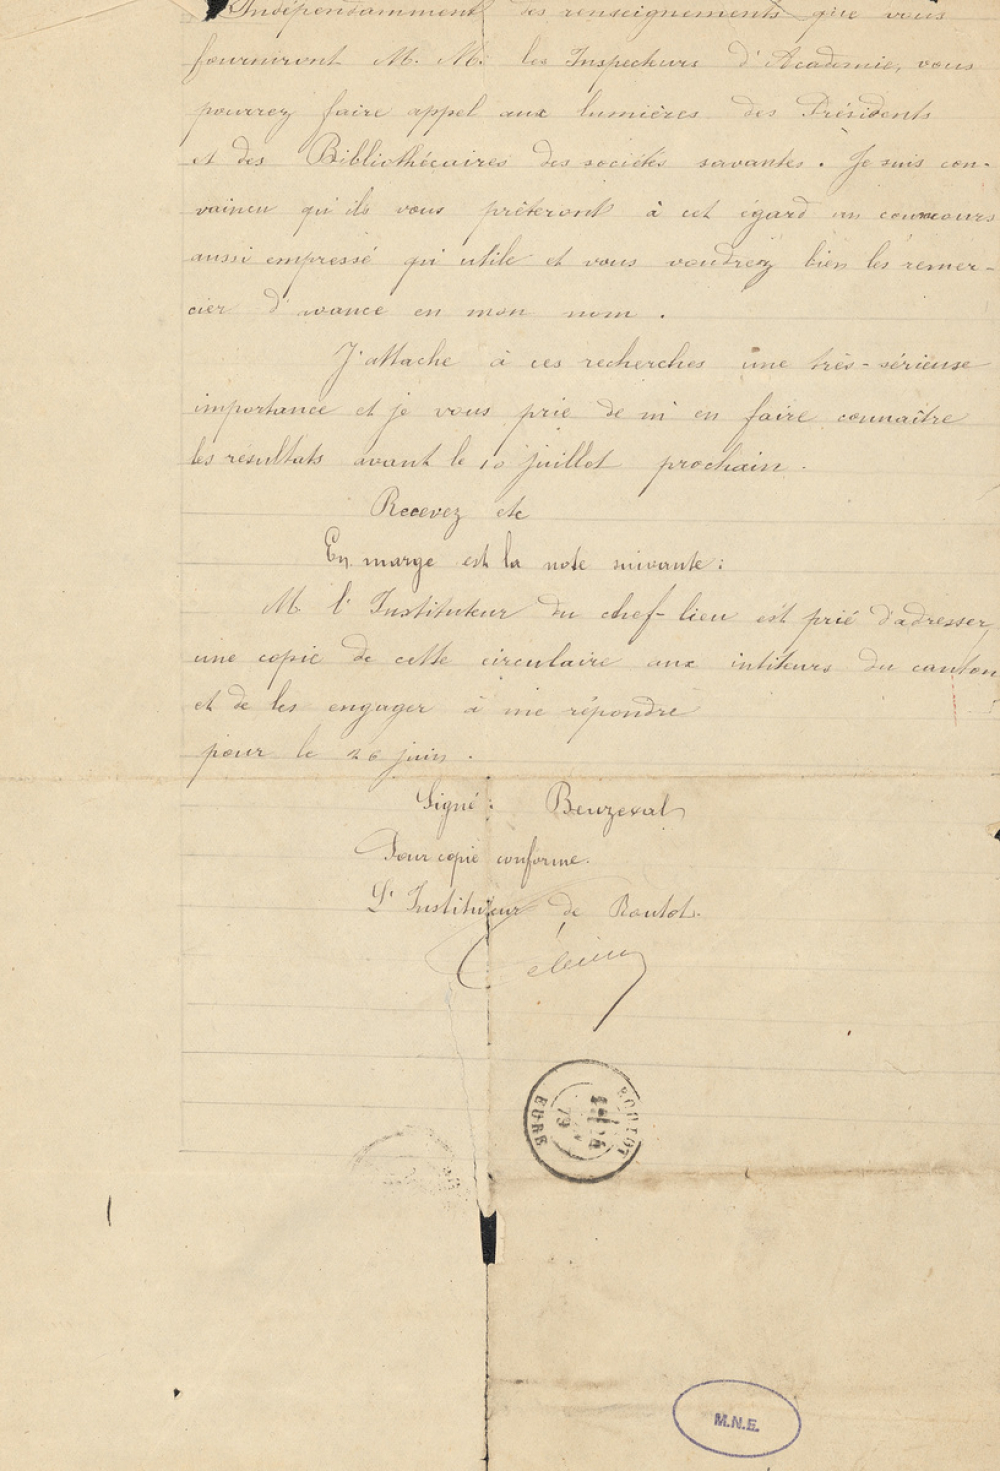 Indépendamment des renseignements que vous
fourniront M. M. les Inspecteurs d'Academie, vous
pourrez faire appel aux lumières des Présidents
et des Bibliothécaires des sociétés savantes. Je suis con-
vaincu qu'ils vous prêteront à cet égard un concours
aussi empressé qu'utile et vous voudrez bien les remer-
cier d'avance en mon nom.
J'attache à ces recherches une très-sérieuse
importance et je vous prie de m'en faire connaître
les résultats avant le 10 juillet prochain.
Recevez etc
En marge est la note suivante:
M. l'Instituteur du chef-lieu est prié d'adresser
une copie de cette circulaire aux intiteurs du canton
et de les engager à me répondre
pour le 26 juin.
Signé: Beuzeval
Pour copie conforme.
L' Instituteur de Routot.
ROUTOT
79
EURE
M.N.E.